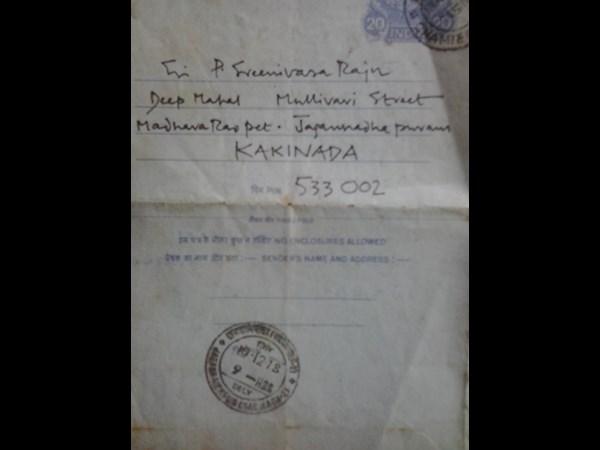 20 INDIA 20
Sri P Sreenivasa Raju
Deep Mahal Mullivari Street
Madhava Rao pet. Jagannadha puram
KAKINADA
पिन PIN 533 002
NO ENCLOSURES ALLOWED
SENDER'S NAME AND ADDRESS :—
9 —HRS
DELY